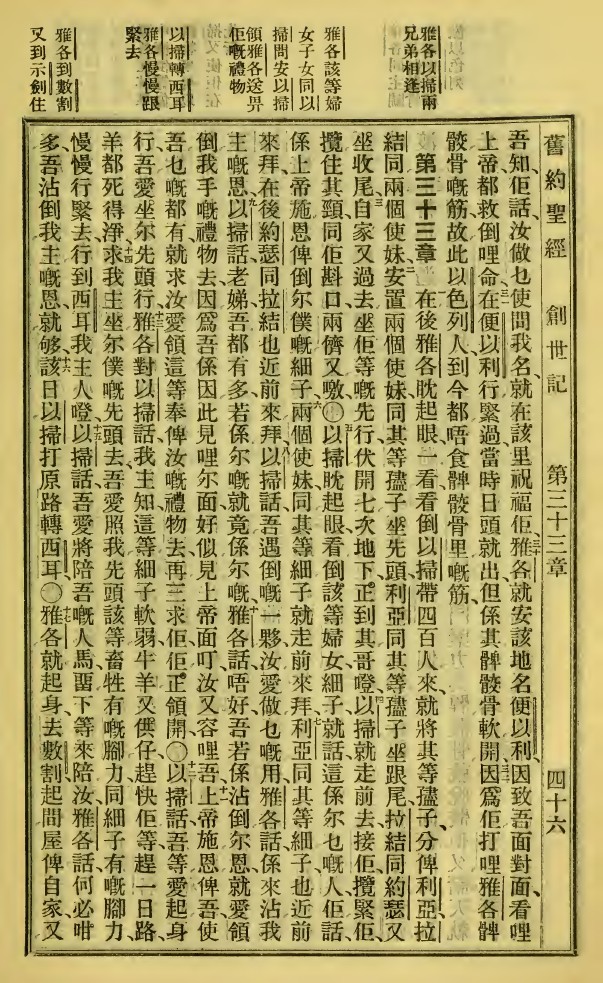 雅各以掃兩
兄弟相逢
雅各該等婦
女子女同以
掃問安以掃
領雅各送畀
佢嘅禮物
以掃轉西耳
雅各慢慢跟
緊去
雅各到數割
又到示劍住
舊約聖經 創世記 第三十三章 四十六
吾知佢話汝做乜使問我名、就在該里祝福佢、三十雅各就安該地名便以利、因致吾面對面看哩
上帝、都救倒哩命、三一在便以利行緊過、當時日頭就出、但係其髀骹骨軟開、三二因爲佢打哩雅各髀
骹骨嘅筋、故此以色列人、到今都唔食髀骹骨里嘅筋、
第三十三章 一在後雅各眈起眼一看、看倒以掃帶四百人來、就將其等孻子、分俾利亞拉
結、同兩個使妹、二安置兩個使妹同其等孻子坐先頭、利亞同其等孻子坐跟尾、拉結同約瑟又
坐收尾、三自家又過去、坐佢等嘅先行、伏開七次地下、正到其哥嶝、四以掃就走前去接佢、攬緊佢、
攬住其頸、同佢斟口、兩儕又噭、〇五以掃眈起眼看倒該等婦女細子、就話這係尔乜嘅人、佢話、
係上帝施恩俾倒尔僕嘅細子、六兩個使妹、同其等細子就走前來拜、七利亞同其等細子、也近前
來拜、在後約瑟同拉結也近前來拜、八以掃話、吾遇倒嘅一夥、汝愛做乜嘅用、雅各話、係來沾我
主嘅恩、九以掃話、老娣吾都有多、若係尔嘅、就竟係尔嘅、十雅各話、唔好、吾若係沾倒尔恩、就愛領
倒我手嘅禮物去、因爲吾係因此見哩尔面、好似見上帝面叮、汝又容哩吾、十一上帝施恩俾吾、使
吾乜嘅都有、就求汝愛領這等奉俾汝嘅禮物去、再三求佢、佢正領開、〇十二以掃話、吾等愛起身
行、吾愛坐尔先頭行、十三雅各對以掃話、我主知這等細子軟弱、牛羊又㒑仔、趕快佢等趕一日路、
羊都死得淨、十四求我主坐尔僕嘅先頭去、吾愛照我先頭該等畜牲有嘅腳力、同細子有嘅腳力、
慢慢行緊去、行到西耳我主人嶝、十五以掃話、吾愛將陪吾嘅人馬畱下等來陪汝、雅各話、何必咁
多、吾沾倒我主嘅恩就够、十六該日以掃打原路轉西耳、〇十七雅各就起身、去數割起間屋俾自家、又